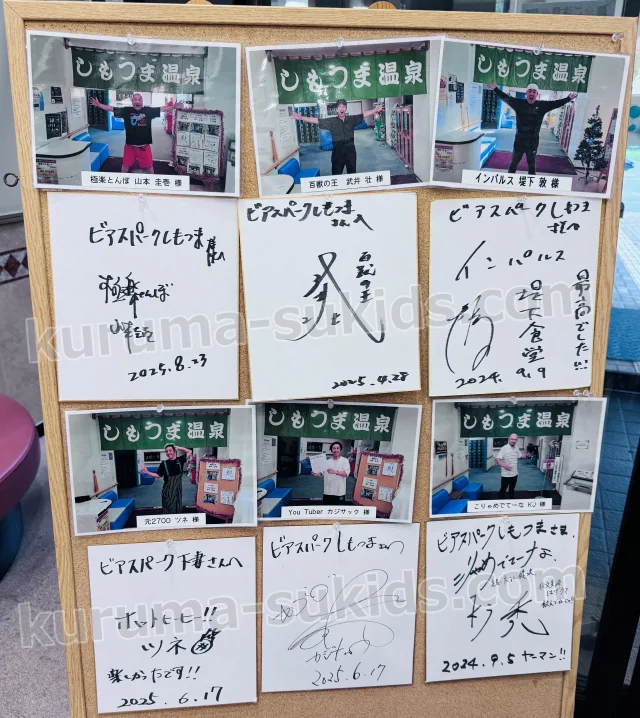 しもつま温泉
しもつま温泉
しもつま温泉
極楽とんぼ 山本 圭壱 様
百獣の王 武井 壮 様
インパルス 堤下 敦 様
ビアスパークしもつま
様へ
極楽とんぼ
2025.8.23
ビアスパークしもつま
さんへ
百獣の王
2025.4.28
ビアスパークしもつま
様へ
インパルス
堤下食堂
最高でした!!!
2024.9.9
kuruma-sukids.com
しもつま温泉
しもつま温泉
しもつま温泉
元2700 ツネ 様
You Tuber カジサック 様
こりゃめでてーな KJ 様
ビアスパーク下妻さんへ
ホットヒーヒー!!
ツネ
楽しかったです!!
2025.6.17
ビアスパークしもつまさんへ
カジサック
2025.6.17
ビアスパークしもつまさま。
2024.9.5 ヤーマン!!
kuruma-sukids.com